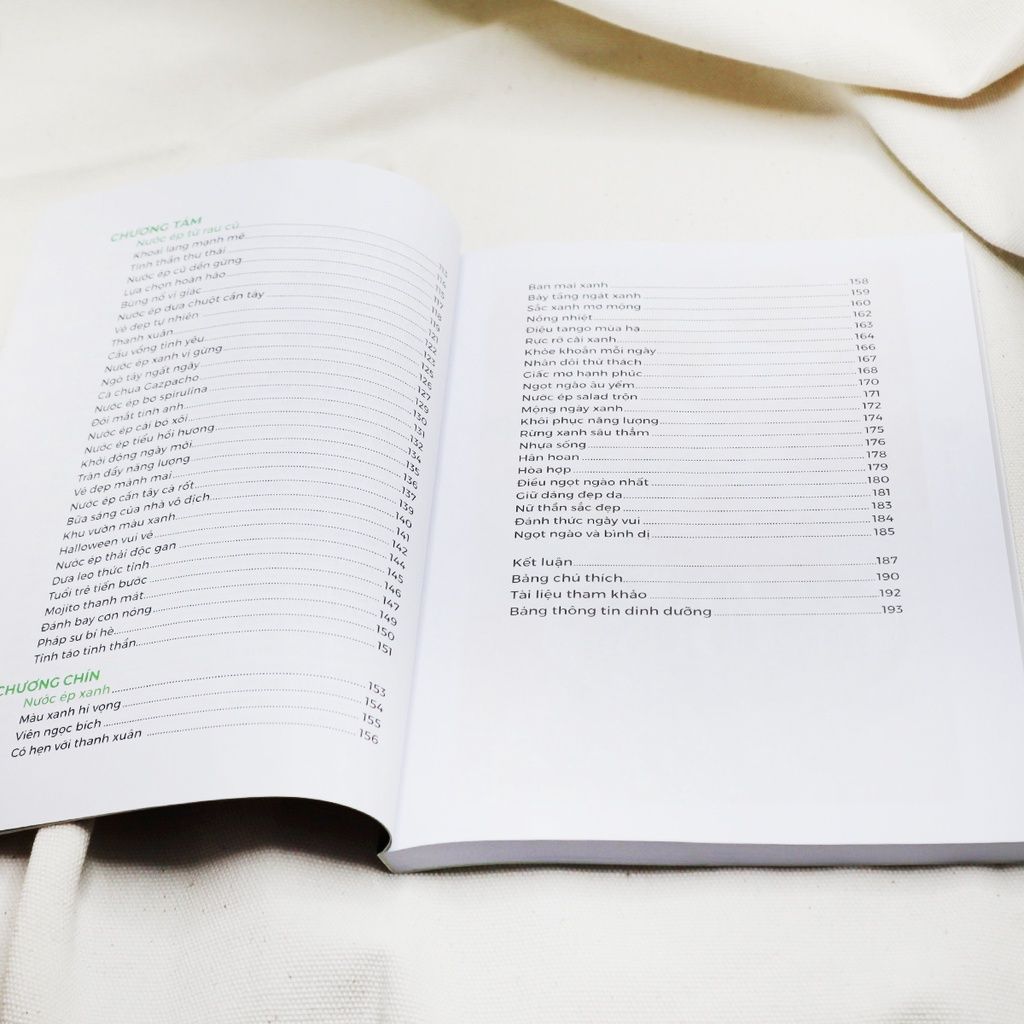 CHƯƠNG TÁM
Nước ép từ rau củ
Khoai lang mạnh mẽ
Tinh thần thư thái
Nước ép củ dền gừng 117
Lựa chọn hoàn hảo 118
Bùng nổ vị giác 119
Nước ép dưa chuột cần tây 121
Vẻ đẹp tự nhiên 122
Thanh xuân 123
Cầu vồng tình yêu 125
Nước ép xanh vị gừng 126
Ngò tây ngất ngây 127
Cà chua Gazpacho 129
Nước ép bơ spirulina 130
Đôi mắt tinh anh 131
Nước ép cải bó xôi 132
Nước ép tiểu hồi hương 134
Khởi động ngày mới 135
Tràn đầy năng lượng 136
Vẻ đẹp mảnh mai 137
Nước ép cần tây cà rốt 139
Bữa sáng của nhà vô địch 140
Khu vườn màu xanh 141
Halloween vui vẻ 142
Nước ép thải độc gan 144
Dưa leo thức tỉnh 145
Tuổi trẻ tiến bước 146
Mojito thanh mát 147
Đánh bay cơn nóng 149
Pháp sư bí hè 150
Tỉnh táo tinh thần 151
CHƯƠNG CHÍN
Nước ép xanh 153
Màu xanh hi vọng 154
Viên ngọc bích 155
Có hẹn với thanh xuân 156
Ban mai xanh 158
Bảy tầng ngát xanh 159
Sắc xanh mơ mộng 160
Nồng nhiệt 162
Điệu tango mùa hạ 163
Rực rỡ cải xanh 164
Khỏe khoắn mỗi ngày 166
Nhân đôi thử thách 167
Giấc mơ hạnh phúc 168
Ngọt ngào âu yếm 170
Nước ép salad trộn 171
Mộng ngày xanh 172
Khôi phục năng lượng 174
Rừng xanh sâu thẳm 175
Nhựa sống 176
Hân hoan 178
Hòa hợp 179
Điều ngọt ngào nhất 180
Giữ dáng đẹp da 181
Nữ thần sắc đẹp 183
Đánh thức ngày vui 184
Ngọt ngào và bình dị 185
Kết luận 187
Bảng chú thích 190
Tài liệu tham khảo 192
Bảng thông tin dinh dưỡng 193